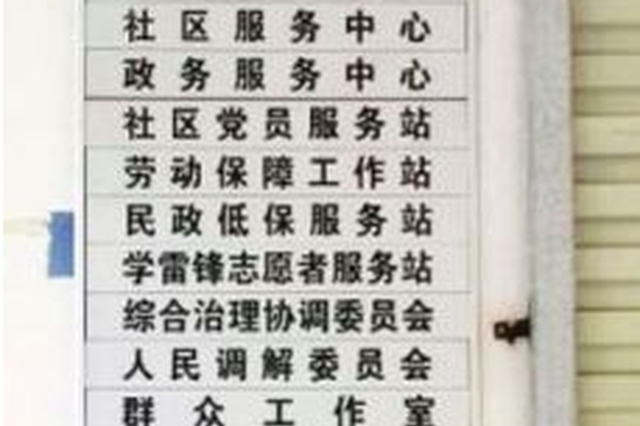 社区服务中心
政务服务中心
社区党员服务站
劳动保障工作站
民政低保服务站
学雷锋志愿者服务站
综合治理协调委员会
人民调解委员会
群众工作室